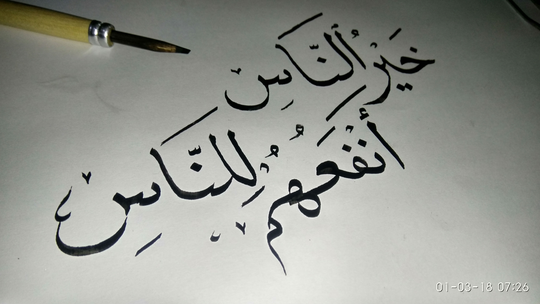 خَيْرُ ٱلنَّاسِ
أَنْفَعُهُمْ لِلنَّاسِ
01-03-18 07:26